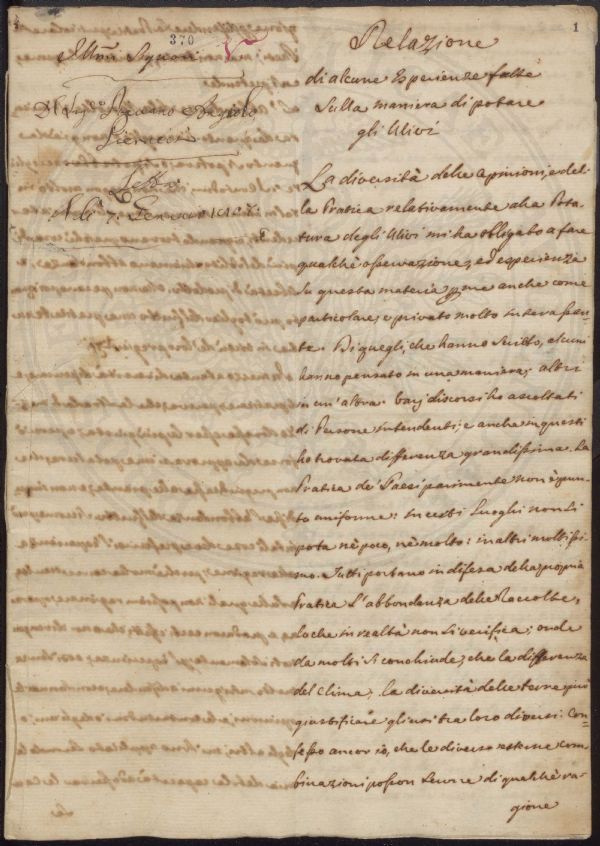 370
1
Relazione
di alcune Esperienze fatte
sulla maniera di potare
gli Ulivi
Illmi Signori
Del Sigr
Letta
A dì 7. Gennaio
La diversità delle Opinioni, e del-
la Pratica relativamente alla Pota-
tura degli Ulivi mi ha obbligato a fare
qualche osservazione, ed esperienza
su questa materia anche come
particolare, e privato molto interessan-
te. Di quegli, che hanno scritto, alcuni
hanno pensato in una maniera, altri
in un'altra. Varj discorsi ho ascoltati
di Persone intendenti; e anche in questi
ho trovata differenza grandissima. La
Pratica de' Paesi parimente non è pun-
to uniforme: in certi Luoghi non si
pota nè poco, nè molto: in altri moltissi-
mo. Tutti portano in difesa della propria
Pratica l'abbondanza delle Raccolte,
lo che in realtà non si verifica; onde
da molti si conchiude, che la differenza
del Clima, la diversità delle terre può
giustificare gli usi tra loro diversi. Con-
fesso ancor io, che le diverse esterne com-
binazioni posson servire di qualche ra-
gione